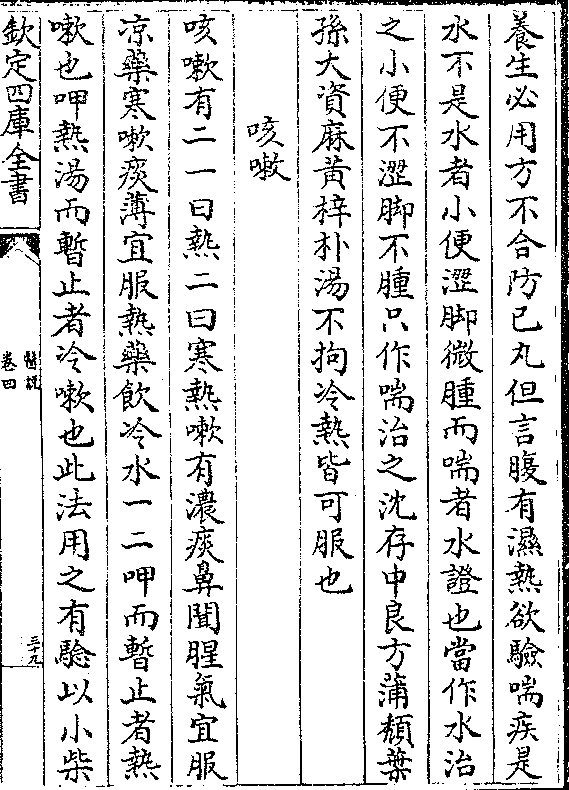 養生必用方不合防己丸但言腹有濕熱欲驗喘疾是
水不是水者小便澀脚微腫而喘者水證也當作水治
之小便不澀脚不腫只作喘治之沈存中良方蒲頽葉
孫大資麻黄梓朴湯不拘冷熱皆可服也
咳嗽
咳嗽有二一曰熱二曰寒熱嗽有濃痰鼻聞腥氣宜服
凉藥寒嗽痰薄宜服熱藥飲冷水一二呷而暫止者熱
嗽也呷熱湯而暫止者冷嗽也此法用之有驗以小柴
欽定四庫全書
醫説
卷四
三十九